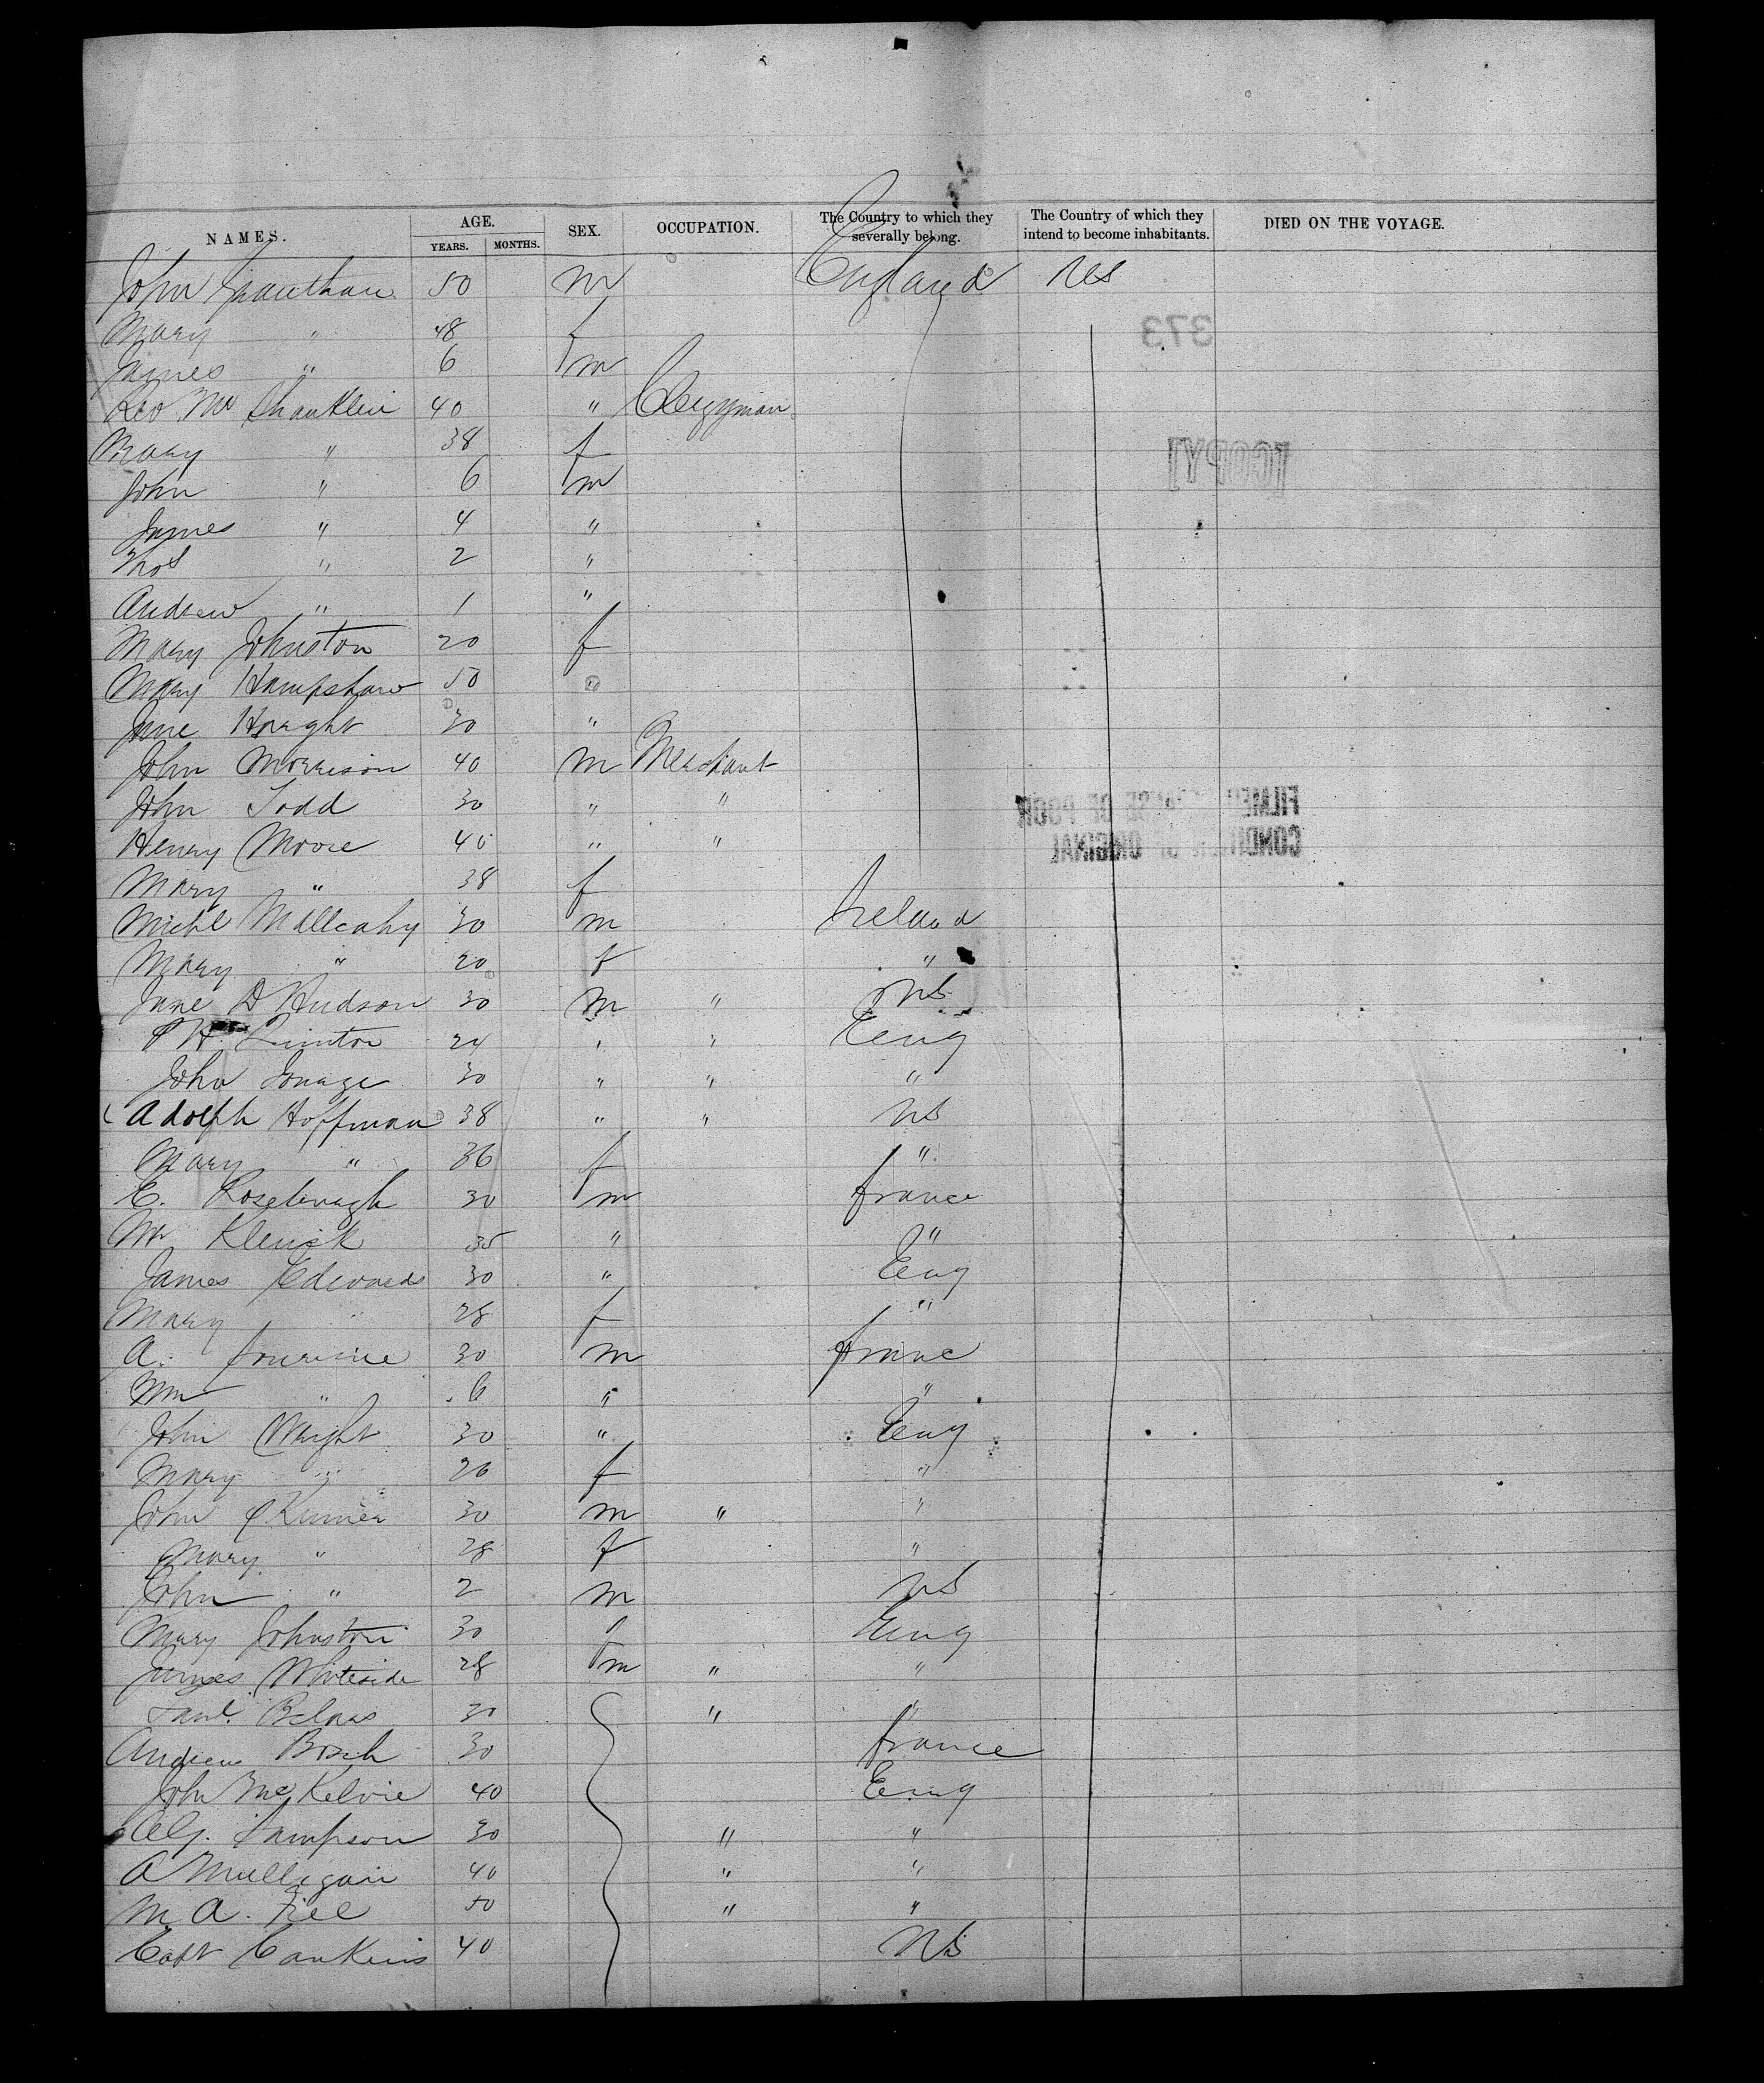 NAMES. AGE. YEARS. MONTHS. SEX. OCCUPATION. The Country to which they severally belong. The Country of which they intend to become inhabitants. DIED ON THE VOYAGE.
John 50 m England US
Mary " 48 f
373
James " 6 m
Rev Mr Shanklin 40 " Clergyman
Mary " 38 f
[COPY]
John " 6 m
James " 4 "
Thos " 2 "
Andrew " 1 "
Mary Johnston 20 f
Mary Hampshaw 50 "
Jane 30 "
John Morrison 40 m Merchant
John Todd 30 " "
FILMED BECAUSE OF POOR
CONDITION OF ORIGINAL
Henry Moore 40 " "
Mary " 38 f
Michl Mullcahy 30 m Ireland
Mary " 20 f "
Jane D Hudson 30 m " US
P H Quinton 24 " " Eng
John 30 " " "
Adolph Hoffman 38 " " US
Mary " 36 f "
C. Rosebrugh 30 m France
Mr 35 " "
James Edwards 30 " Eng
Mary " 28 f "
A. 30 m France
Wm " 6 " "
John Wright 30 " Eng
Mary " 26 f "
John 30 m " "
Mary " 28 f "
John " 2 m US
Mary Johnston 30 f Eng
James Whiteside 28 m " "
30 " "
Andrew Bosch 30 France
John McKelvie 40 Eng
Sampson 30 " "
A Mulligan 40 " "
M A. 50 " "
Capt Cankins 40 US